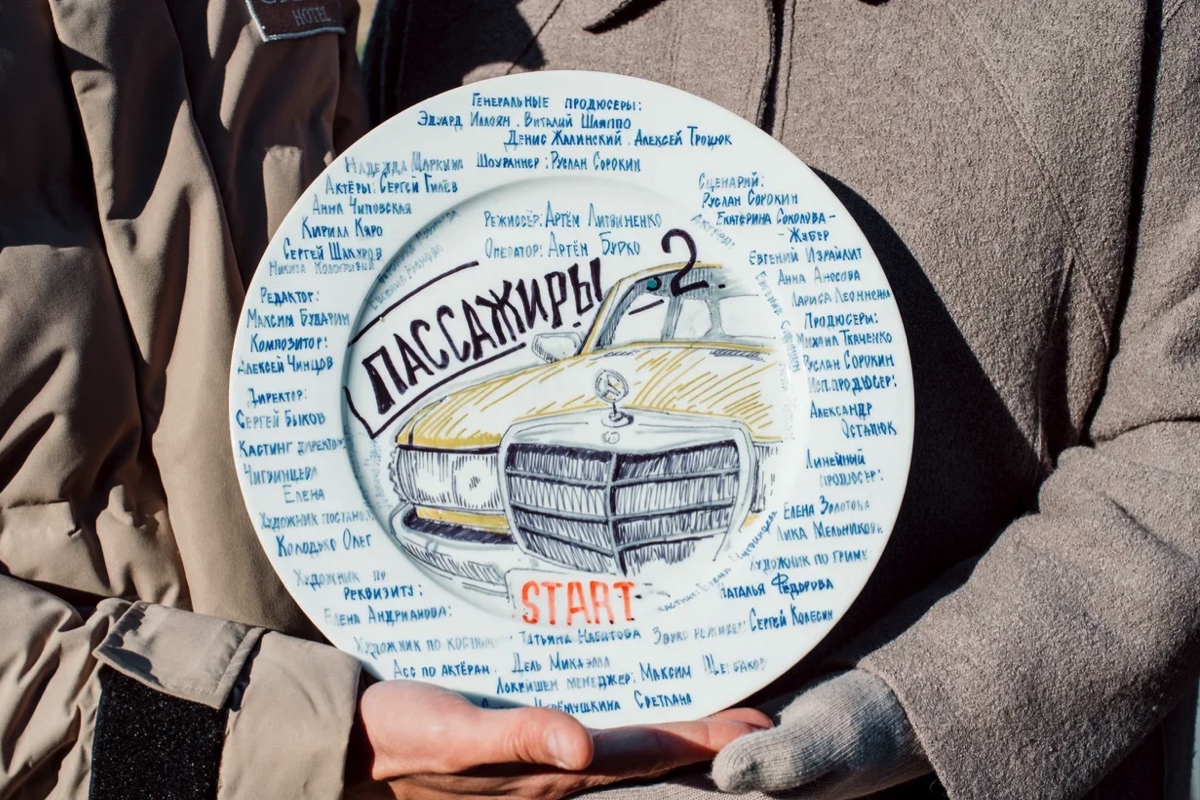 HOTEL
Генеральные продюсеры:
Эдуард Иллоян. Виталий Шляппо
Денис Жалинский. Алексей Троцюк
Шоураннер: Руслан Сорокин
Надежда Маркина
Актёры: Сергей Гилёв
Анна Чиповская
Кирилл Каро
Сергей Шакуров
Редактор:
Максим Бударин
Композитор:
Алексей Чинцов
Директор:
Сергей Быков
Кастинг директор
Чигвинцева
Елена
Художник
Колодько Олег
Художник по
реквизиту:
Елена Андрианова:
Художник по
Татьяна Набатова
Асс по актёрам.
Дель Микаэлла
Локейшен менеджер: Максим
Светлана
Сценарий:
Руслан Сорокин
Екатерина Соколова-
-Жубер
Евгений Израйлит
Анна Аносова
Лариса
Продюсеры:
Михаил Ткаченко
Руслан Сорокин
Исп.продюсер:
Александр
Остапюк
Линейный
продюсер:
Елена Золотова
Лика
Художник по гриму
Наталья Фёдорова
Звуко режиссер: Сергей Колесин
Режиссёр: Артём Литвиненко
Оператор: Артём Бурко
ПАССАЖИРЫ 2.
START